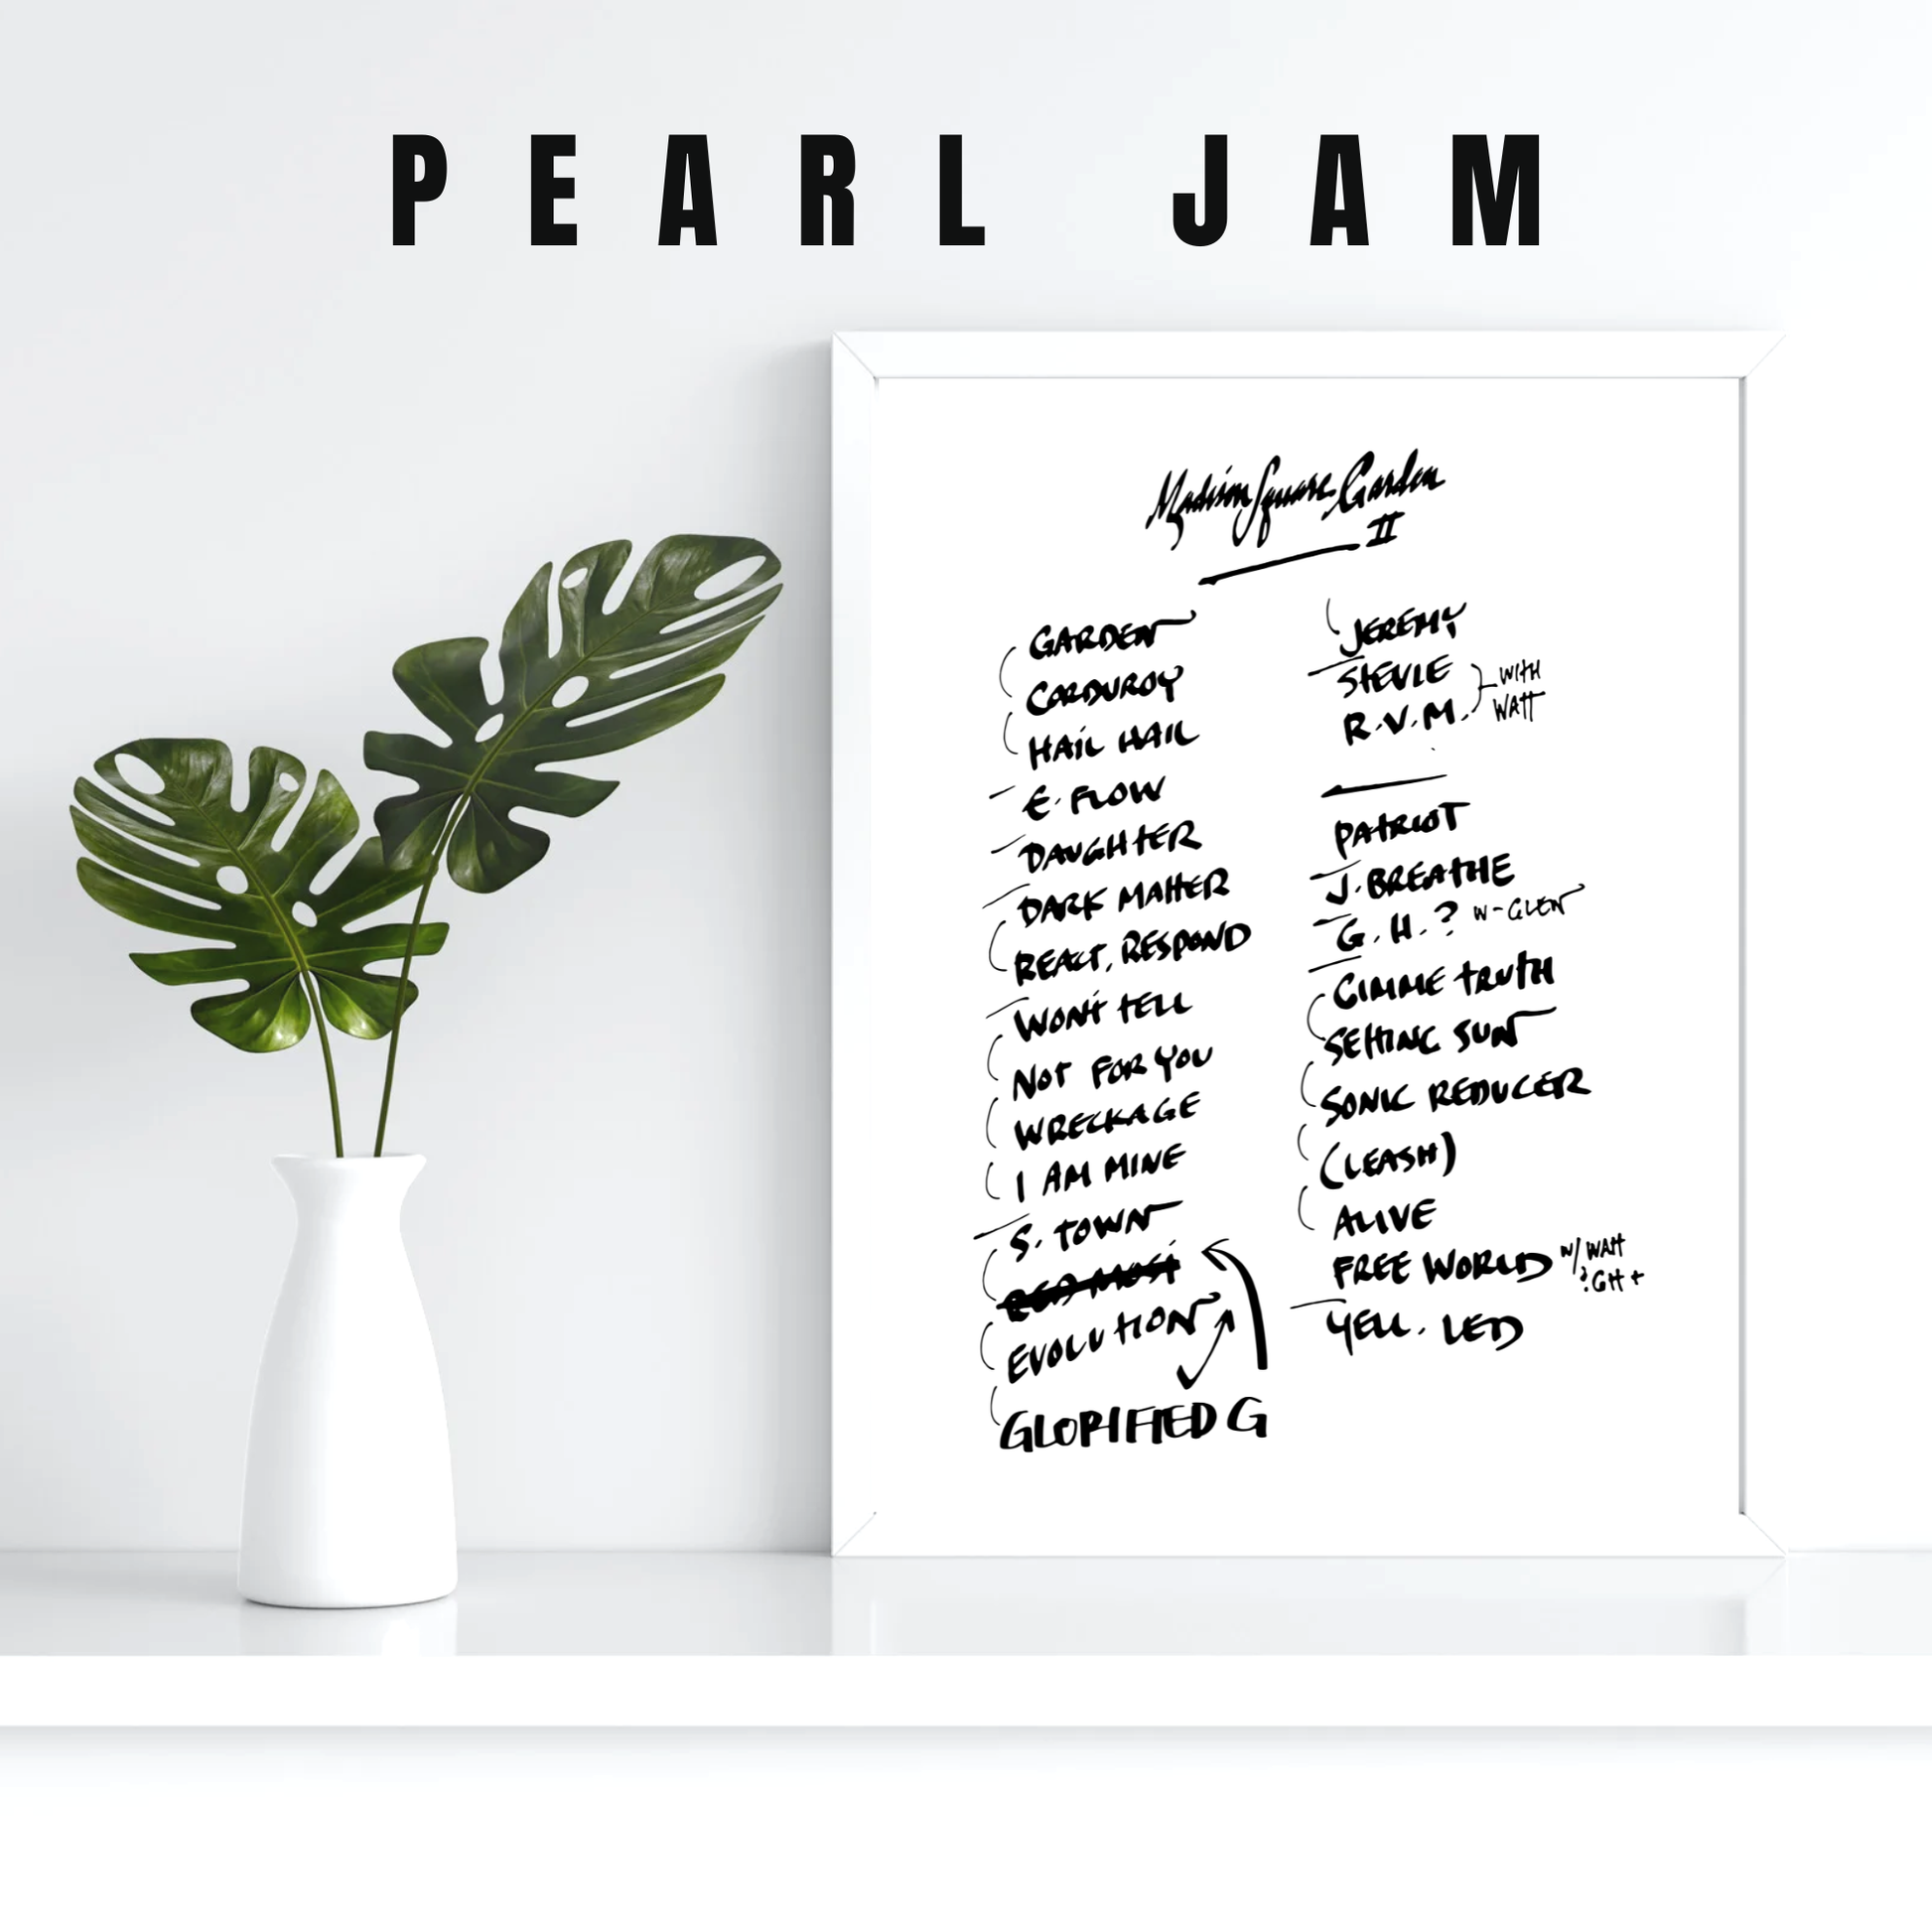 PEARL JAM
Madison Square Garden
II
GARDEN
CORDUROY
HAIL HAIL
E. FLOW
DAUGHTER
DARK MATTER
REACT, RESPOND
WON'T TELL
NOT FOR YOU
WRECKAGE
I AM MINE
S. TOWN
RED MOSQ
EVOLUTION
GLORIFIED G
JEREMY
STEVIE
R.V.M.
WITH
WATT
PATRIOT
J. BREATHE
G.H.? W-GLEN
GIMME TRUTH
SETTING SUN
SONIC REDUCER
(LEASH)
ALIVE
FREE WORLD W/ WATT
?GH+
YELL. LED